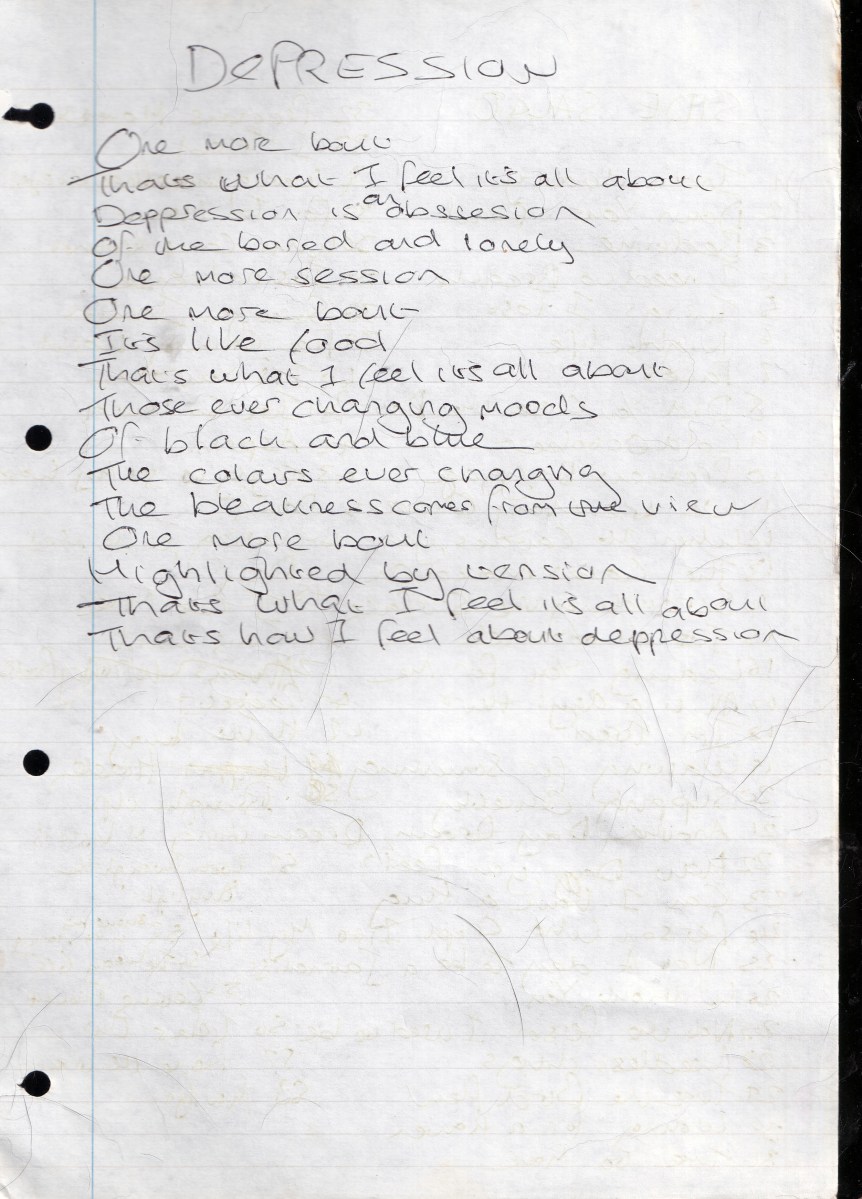 DePRESSION
One more bout
Thats what I feel it's all about
Deppression is an obssesion
Of me bored and lonely
One more session
One more bout
It's like food
That's what I feel it's all about
Those ever changing moods
Of black and blue
The colours ever changing
The bleakness comes from the view
One more bout
Highlighted by tension
Thats what I feel it's all about
Thats how I feel about deppression